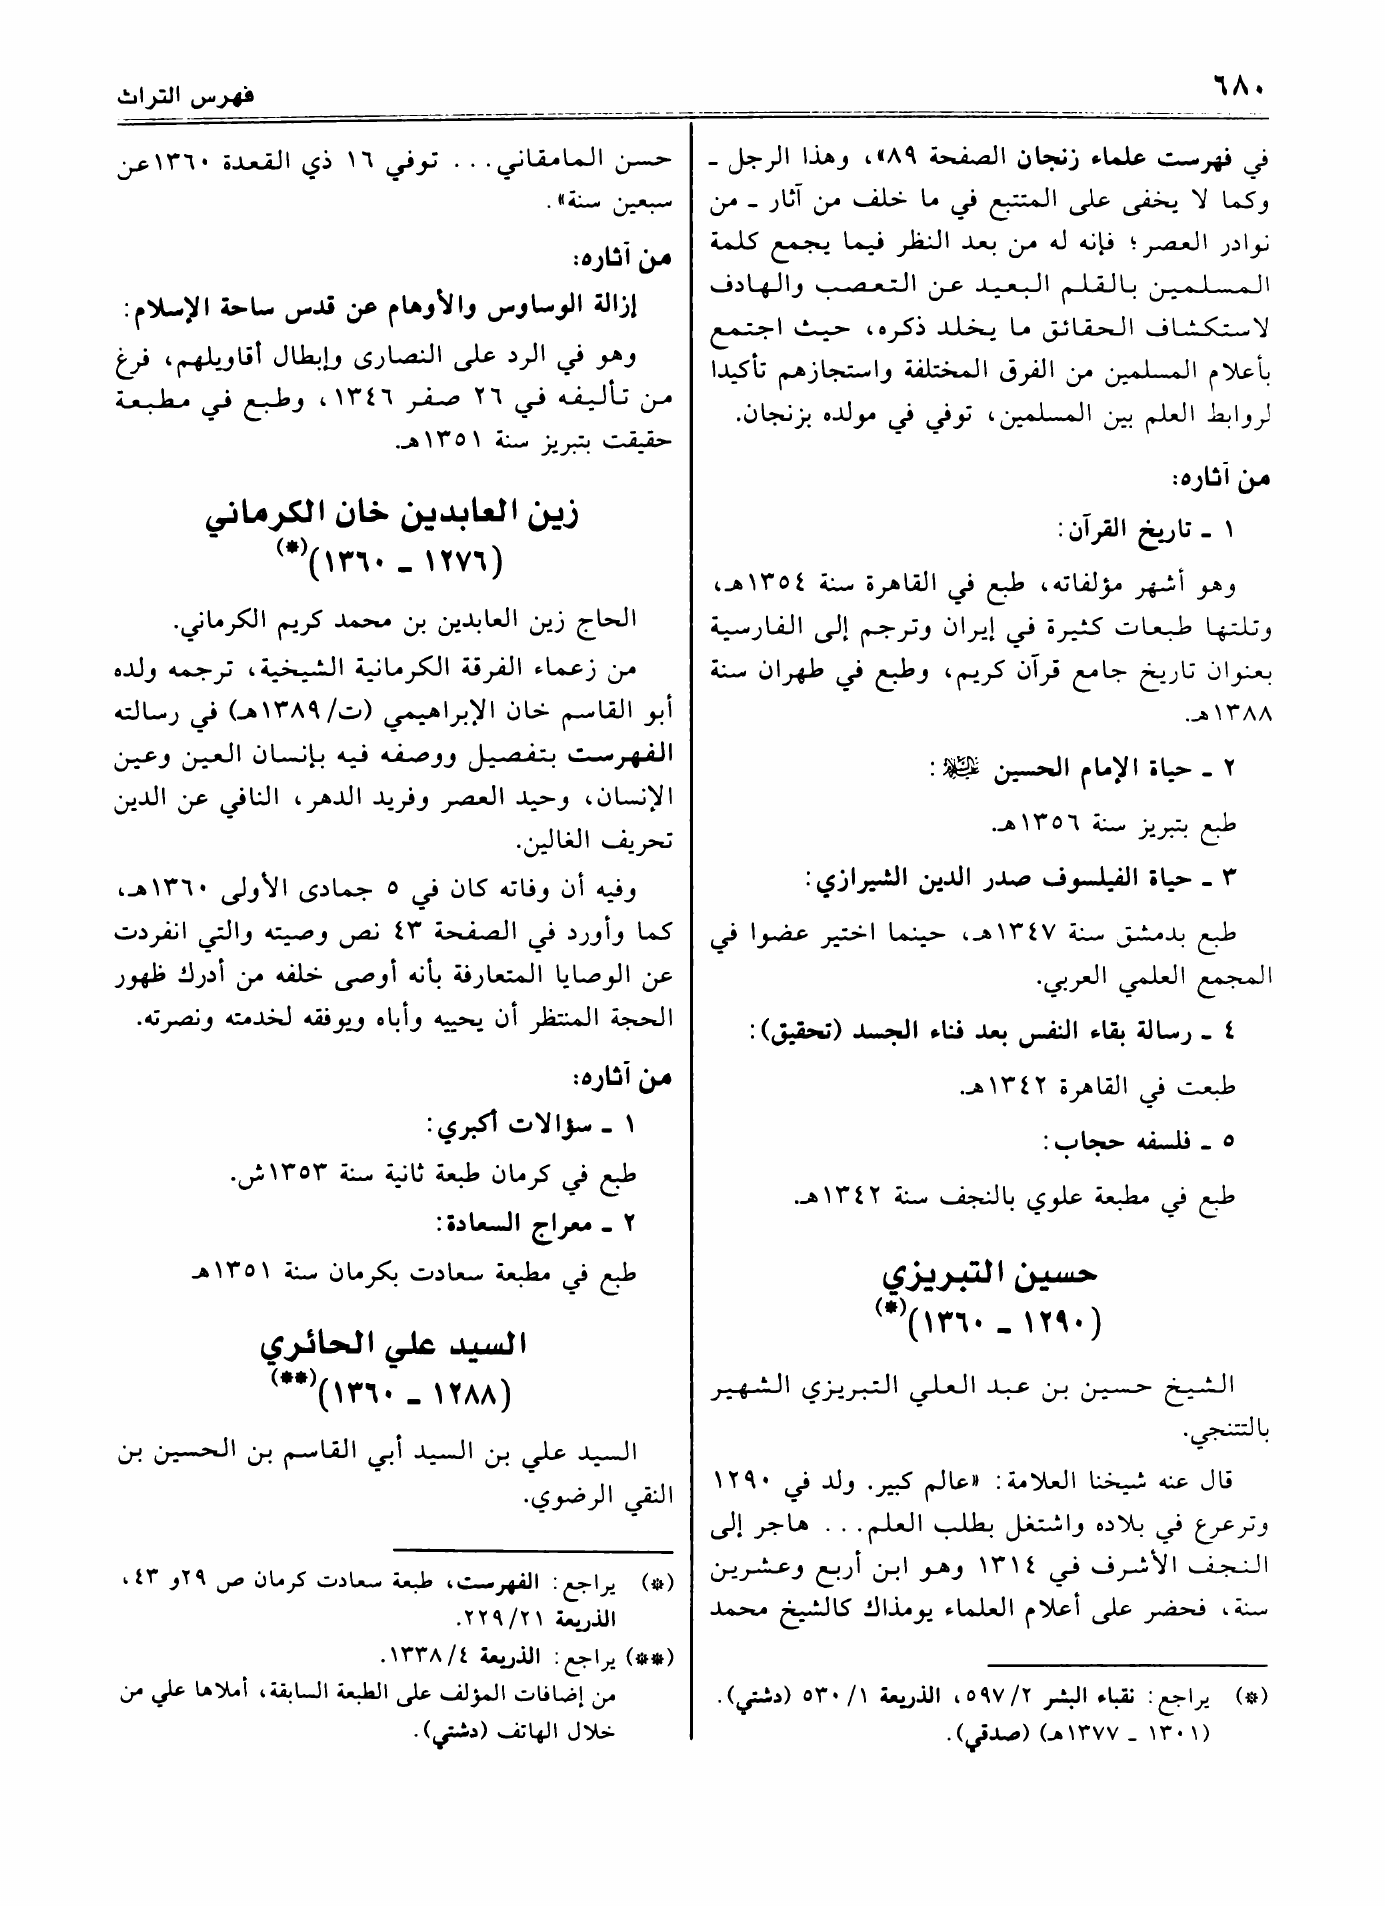 ٦٨٠
فهرس التراث
في فهرست علماء زنجان الصفحة ٨٩»، وهذا الرجل ـ
وكما لا يخفى على المتتبع في ما خلف من آثار ـ من
نوادر العصر؛ فإنه له من بعد النظر فيما يجمع كلمة
المسلمين بالقلم البعيد عن التعصب والهادف
لاستكشاف الحقائق ما يخلد ذكره، حيث اجتمع
بأعلام المسلمين من الفرق المختلفة واستجازهم تأكيدا
لروابط العلم بين المسلمين، توفي في مولده بزنجان.
من آثاره:
١ ـ تاريخ القرآن:
وهو أشهر مؤلفاته، طبع في القاهرة سنة ١٣٥٤هـ،
وتلتها طبعات كثيرة في إيران وترجم إلى الفارسية
بعنوان تاريخ جامع قرآن كريم، وطبع في طهران سنة
١٣٨٨هـ.
٢ ـ حياة الإمام الحسين عليه السلام:
طبع بتبريز سنة ١٣٥٦هـ.
٣ ـ حياة الفيلسوف صدر الدين الشيرازي:
طبع بدمشق سنة ١٣٤٧هـ، حينما اختير عضوا في
المجمع العلمي العربي.
٤ ـ رسالة بقاء النفس بعد فناء الجسد (تحقيق):
طبعت في القاهرة ١٣٤٢هـ.
٥ ـ فلسفه حجاب:
طبع في مطبعة علوي بالنجف سنة ١٣٤٢هـ.
حسين التبريزي
(١٢٩٠ ـ ١٣٦٠)(*)
الشيخ حسين بن عبد العلي التبريزي الشهير
بالتتنجي.
قال عنه شيخنا العلامة: «عالم كبير. ولد في ١٢٩٠
وترعرع في بلاده واشتغل بطلب العلم... هاجر إلى
النجف الأشرف في ١٣١٤ وهو ابن أربع وعشرين
سنة، فحضر على أعلام العلماء يومذاك كالشيخ محمد
(*) يراجع: نقباء البشر ٢/ ٥٩٧، الذريعة ١/ ٥٣٠ (دشتي).
(١٣٠١ ـ ١٣٧٧هـ) (صدقي).
حسن المامقاني... توفي ١٦ ذي القعدة ١٣٦٠عن
سبعين سنة».
من آثاره:
إزالة الوساوس والأوهام عن قدس ساحة الإسلام:
وهو في الرد على النصارى وإبطال أقاويلهم، فرغ
من تأليفه في ٢٦ صفر ١٣٤٦، وطبع في مطبعة
حقيقت بتبريز سنة ١٣٥١هـ.
زين العابدين خان الكرماني
(١٢٧٦ ـ ١٣٦٠)(*)
الحاج زين العابدين بن محمد كريم الكرماني.
من زعماء الفرقة الكرمانية الشيخية، ترجمه ولده
أبو القاسم خان الإبراهيمي (ت/ ١٣٨٩هـ) في رسالته
الفهرست بتفصيل ووصفه فيه بإنسان العين وعين
الإنسان، وحيد العصر وفريد الدهر، النافي عن الدين
تحريف الغالين.
وفيه أن وفاته كان في ٥ جمادى الأولى ١٣٦٠هـ،
كما وأورد في الصفحة ٤٣ نص وصيته والتي انفردت
عن الوصايا المتعارفة بأنه أوصى خلفه من أدرك ظهور
الحجة المنتظر أن يحييه وأباه ويوفقه لخدمته ونصرته.
من آثاره:
١ ـ سؤالات أكبري:
طبع في كرمان طبعة ثانية سنة ١٣٥٣ش.
٢ ـ معراج السعادة:
طبع في مطبعة سعادت بكرمان سنة ١٣٥١هـ
السيد علي الحائري
(١٢٨٨ ـ ١٣٦٠)(**)
السيد علي بن السيد أبي القاسم بن الحسين بن
النقي الرضوي.
(*) يراجع: الفهرست، طبعة سعادت كرمان ص ٢٩و ٤٣،
الذريعة ٢١/ ٢٢٩.
(**) يراجع: الذريعة ٤/ ١٣٣٨.
من إضافات المؤلف على الطبعة السابقة، أملاها علي من
خلال الهاتف (دشتي).